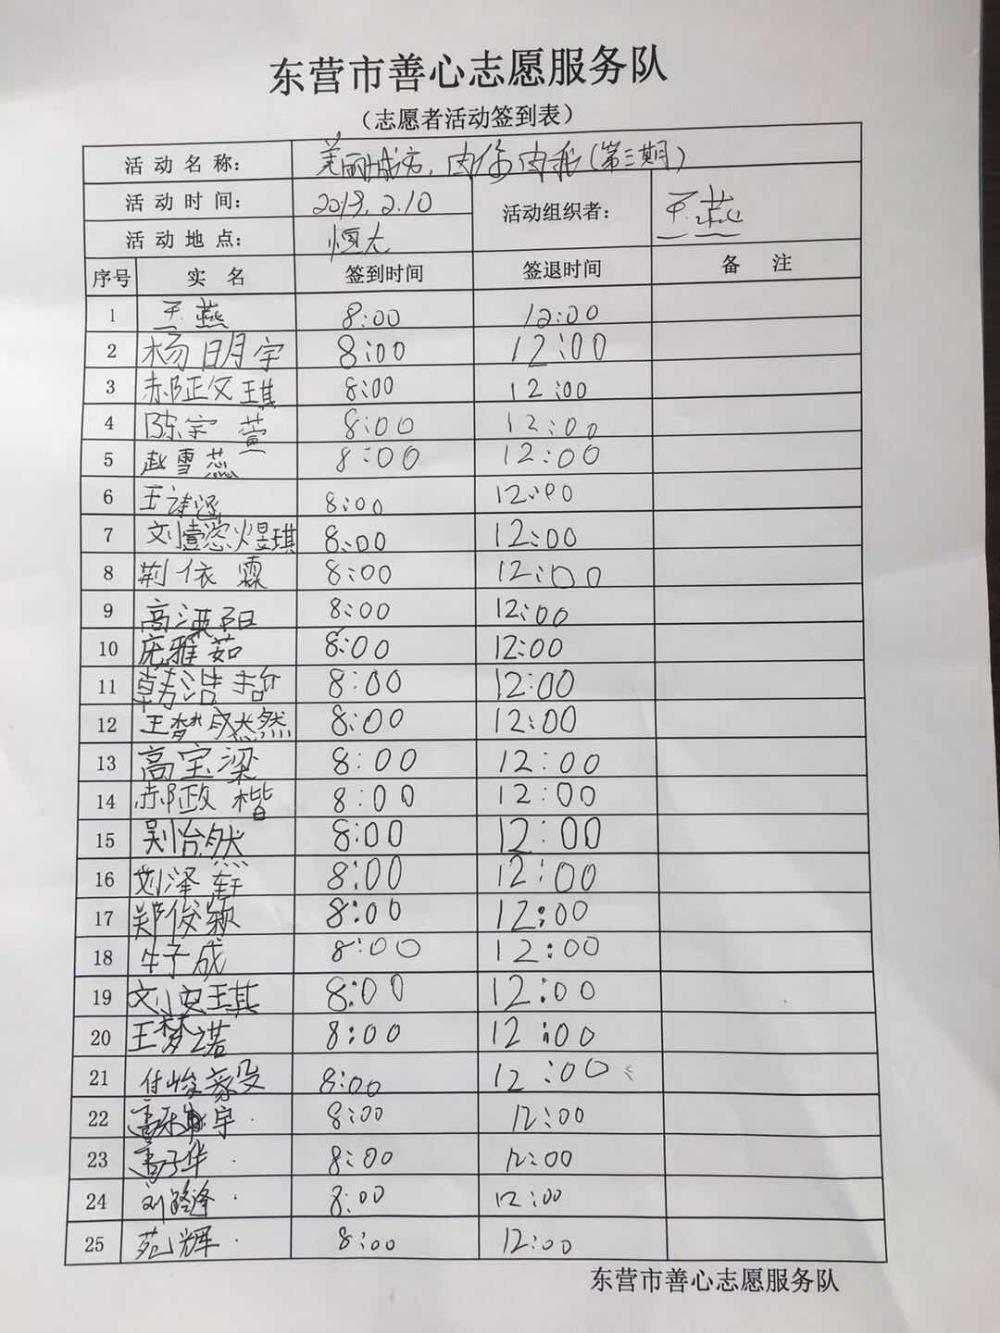 东营市善心志愿服务队
（志愿者活动签到表）
活动名称： 美丽城市，由你由我（第三期）
活动时间： 2019.2.10 活动组织者： 王燕
活动地点： 恒大
序号 实名 签到时间 签退时间 备注
1 王燕 8:00 12:00
2 杨明宇 8:00 12:00
3 郝正文琪 8:00 12:00
4 陈宇萱 8:00 12:00
5 赵雪蕊 8:00 12:00
6 王诗涵 8:00 12:00
7 刘 煜琪 8:00 12:00
8 荆依霖 8:00 12:00
9 高浈阳 8:00 12:00
10 庞雅茹 8:00 12:00
11 韩浩喆 8:00 12:00
12 王梦成然 8:00 12:00
13 高宝梁 8:00 12:00
14 郝政楷 8:00 12:00
15 吴怡然 8:00 12:00
16 刘泽轩 8:00 12:00
17 郑俊颖 8:00 12:00
18 牛子成 8:00 12:00
19 刘安琪 8:00 12:00
20 王梦诺 8:00 12:00
21 付峻豪 8:00 12:00
22 宇 8:00 12:00
23 高子华 8:00 12:00
24 刘 泽 8:00 12:00
25 苑辉 8:00 12:00
东营市善心志愿服务队